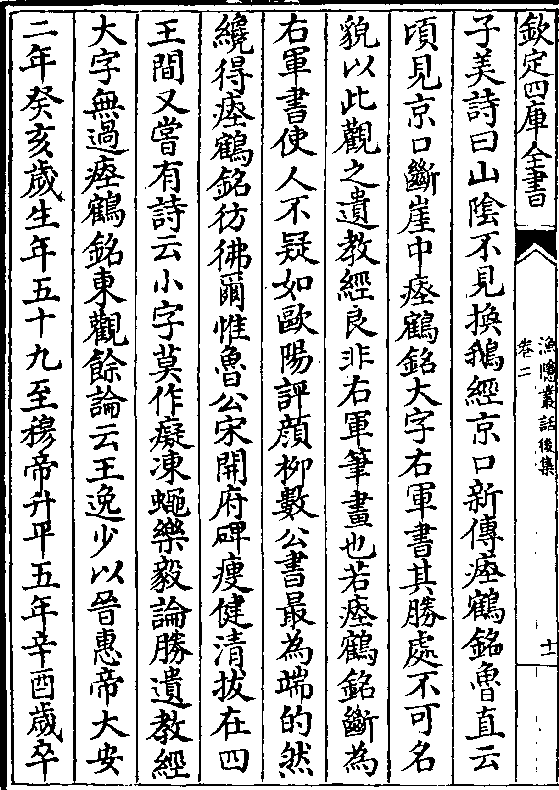 欽定四庫全書
漁隱叢話後集
卷二
十一
子美詩曰山陰不見換鵝經京口新傳瘞鶴銘魯直云
頃見京口斷崖中瘞鶴銘大字右軍書其勝處不可名
貌以此觀之遺教經良非右軍筆畫也若瘞鶴銘斷為
右軍書使人不疑如歐陽評顏柳數公書最為端的然
纔得瘞鶴銘彷彿爾惟魯公宋開府碑瘦健清拔在四
王間又嘗有詩云小字莫作癡凍蠅樂毅論勝遺教經
大字無過瘞鶴銘東觀餘論云王逸少以晉惠帝大安
二年癸亥歲生年五十九至穆帝升平五年辛酉歲卒